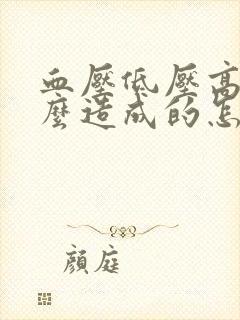 血壓低壓高
麼造成的怎
顏庭